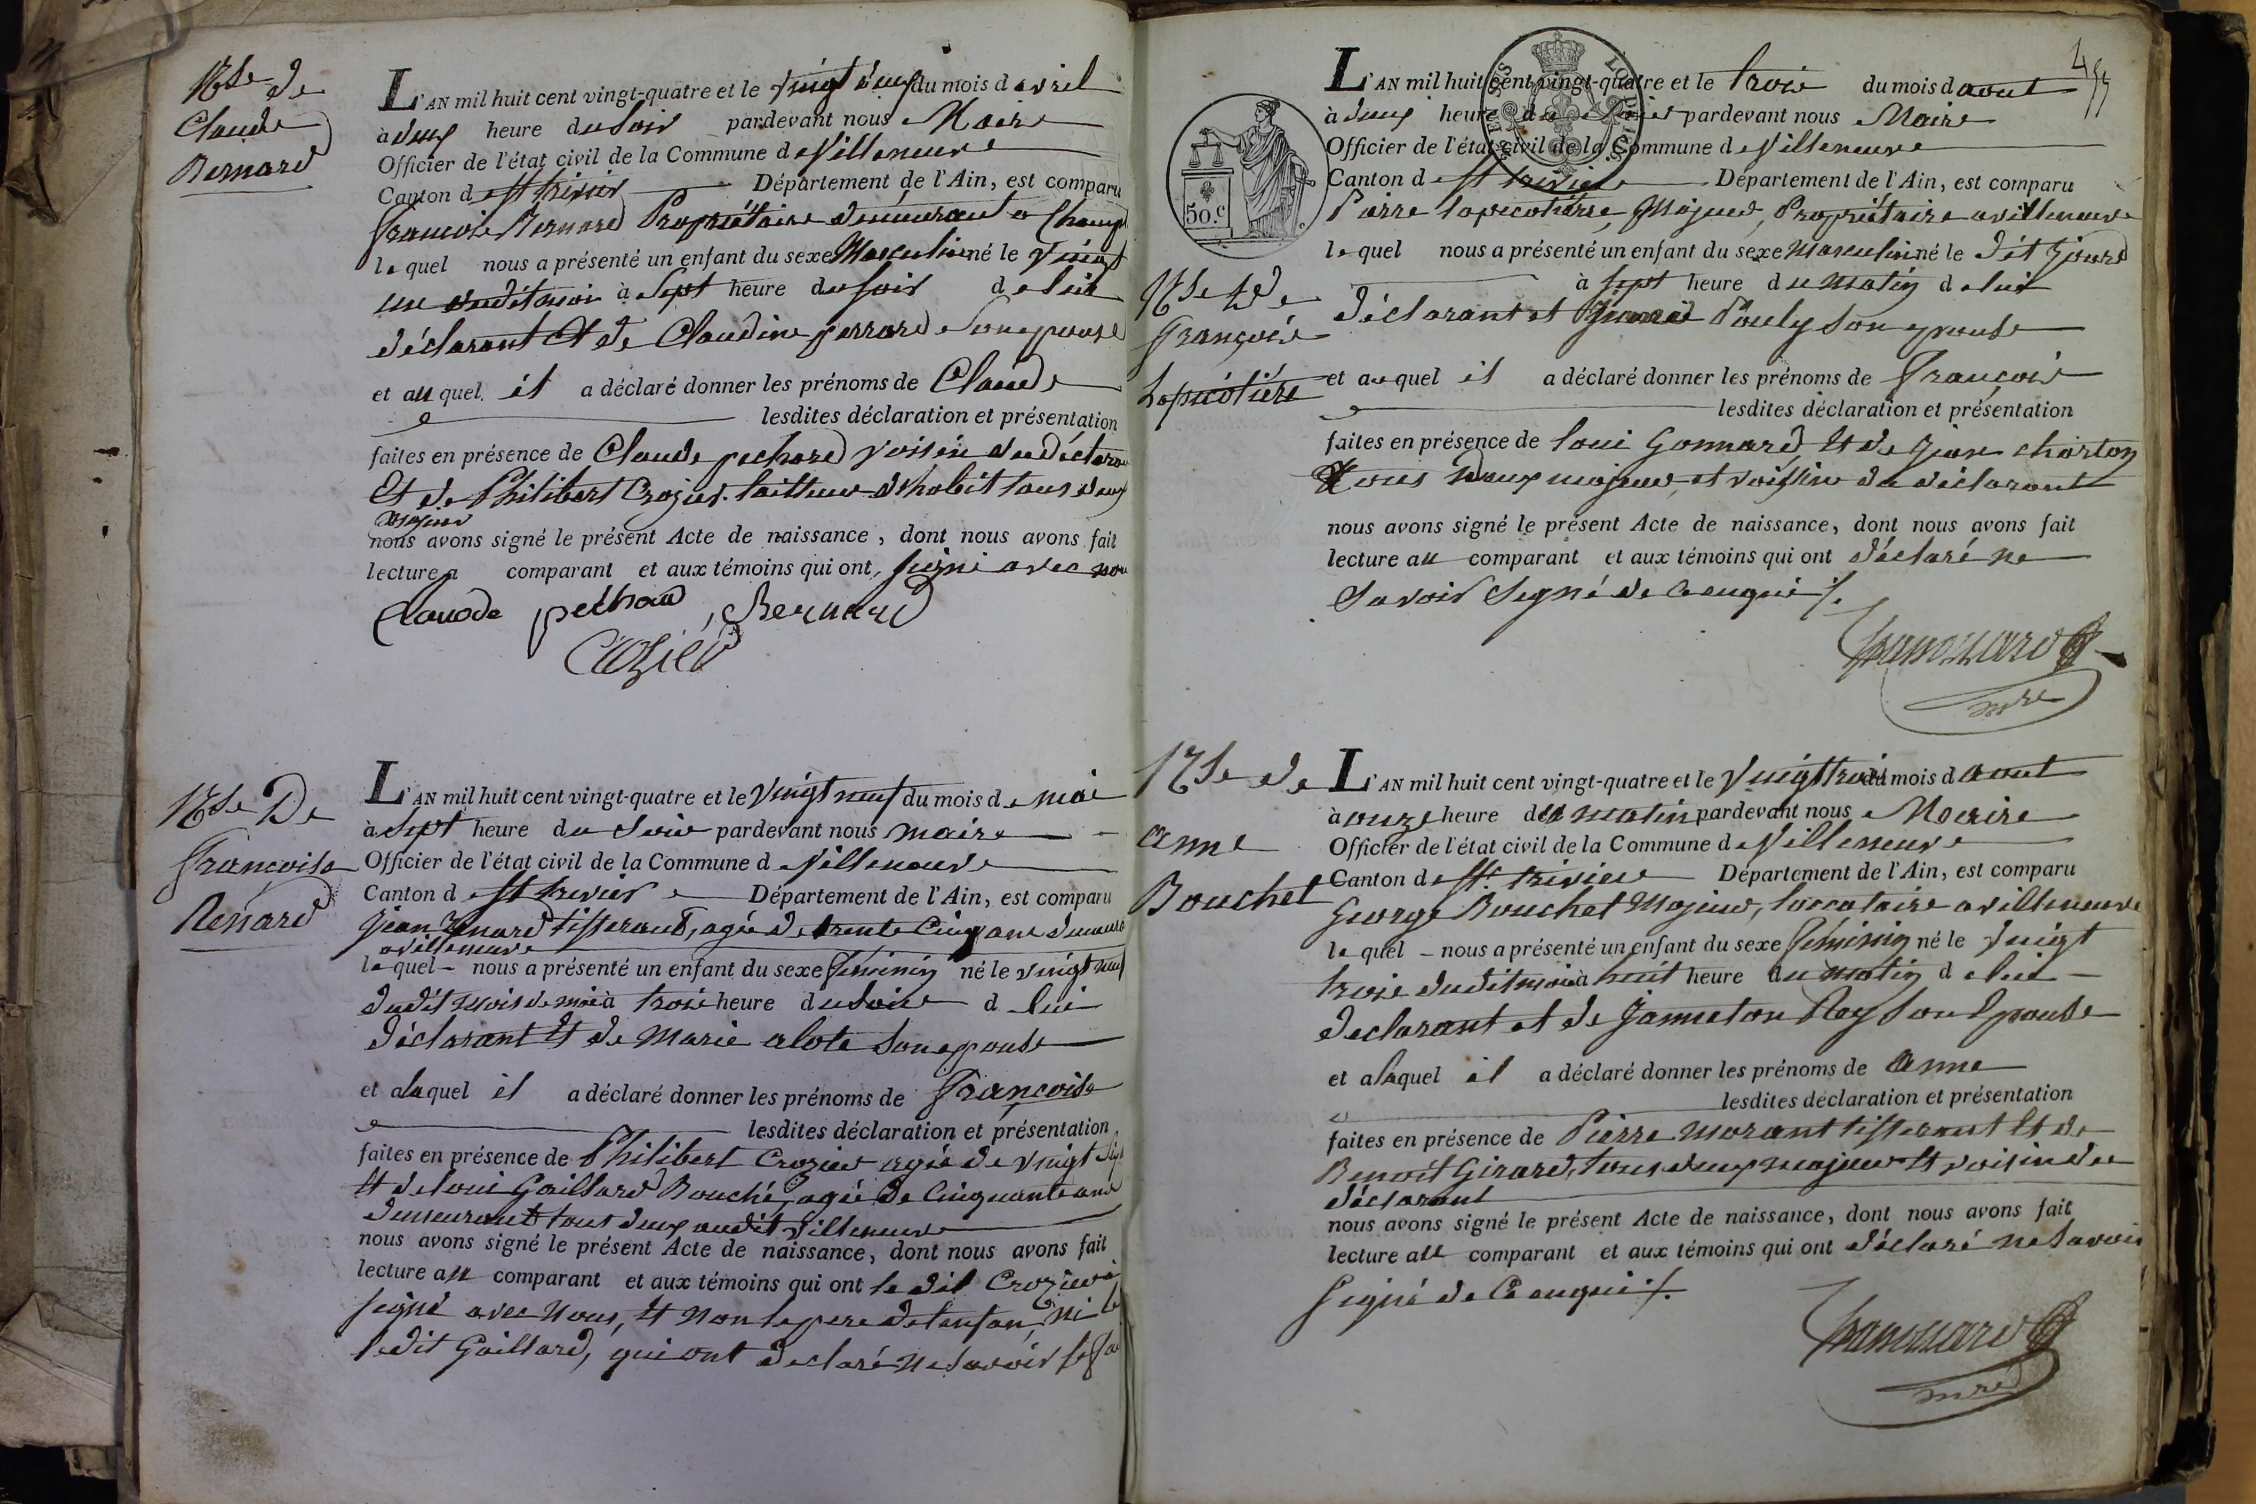 Nse de
Claude
Bernard
L'AN mil huit cent vingt-quatre et le vingt deux du mois d avril
à deux heure du soir pardevant nous Maire
Officier de l'état civil de la Commune de Villeneuve
Canton de St trivier Département de l'Ain, est comparu
francois Bernard Propriétaire demeurant a Champ
lequel nous a présenté un enfant du sexe Masculin né le vingt
un dudit mois à Sept heure du soir de lui
déclarant Et de Claudine perrard son epouse
et auquel il a déclaré donner les prénoms de Claude
lesdites déclaration et présentation
faites en présence de Claude pechard voisin du déclara
Et de Philibert Crozier tailleur d'habit tous deux
majeur
nous avons signé le présent Acte de naissance, dont nous avons fait
lecture a comparant et aux témoins qui ont signé avec nou
Claude pechard, Bernard
Crozier
Nse De
francoise
Renard
L'AN mil huit cent vingt-quatre et le vingt neuf du mois de mai
à Sept heure du Soir pardevant nous maire
Officier de l'état civil de la Commune de Villeneuve
Canton de St trivier Département de l'Ain, est comparu
jean Renard tisserand, agée de trente Cinq ans demeura
a villeneuve
lequel nous a présenté un enfant du sexe féminin né le vingt neuf
dudit mois de mai à trois heure du Soir de lui
déclarant Et de Marie alote son epouse
et alaquel il a déclaré donner les prénoms de françoise
lesdites déclaration et présentation
faites en présence de Philibert Crozier agée de vingt
Et de loui Gaillard Bouché, agée de Cinquante ans
demeurant tous deux audit villeneuve
nous avons signé le présent Acte de naissance, dont nous avons fait
lecture au comparant et aux témoins qui ont le dit Crozier a
signé avec Nous, Et non le pere de lenfan, ni le
ledit Gaillard, qui ont declaré ne savoir
LOUIS
50.c
L'AN mil huit cent vingt-quatre et le trois du mois d aout
à deux heure du soir pardevant nous Maire
Officier de l'état civil de la Commune de Villeneuve
Canton de St trivier Département de l'Ain, est comparu
Pierre lapicotiere, Majeur, Propriétaire a villeneuve
lequel nous a présenté un enfant du sexe masculin né le dit jour
à sept heure du matin de lui
déclarant et Pouly son epouse
et auquel il a déclaré donner les prénoms de françois
lesdites déclaration et présentation
faites en présence de loui Gonnard Et de jean charton
tous deux majeur, et voissin du déclarant
nous avons signé le présent Acte de naissance, dont nous avons fait
lecture au comparant et aux témoins qui ont déclaré ne
savoir Segné de Ce enquei
mre
Nse de
françois
Lapicotiere
Nse de
anne
Bouchet
L'AN mil huit cent vingt-quatre et le vingt trois du mois d aout
à onze heure du matin pardevant nous Maire
Officier de l'état civil de la Commune de Villeneuve
Canton de St trivier Département de l'Ain, est comparu
George Bouchet Majeur, loccataire a villeneuve
lequel nous a présenté un enfant du sexe féminin né le vingt
trois dudit mois à huit heure du matin de lui
declarant et de janneton Rey son Epouse
et alaquel il a déclaré donner les prénoms de anne
lesdites déclaration et présentation
faites en présence de Pierre morant tisserant Et de
Benoit Girard, tous deux majeur Et voisin du
déclarant
nous avons signé le présent Acte de naissance, dont nous avons fait
lecture au comparant et aux témoins qui ont déclaré ne Savoir
signé de Ce enquei
mre